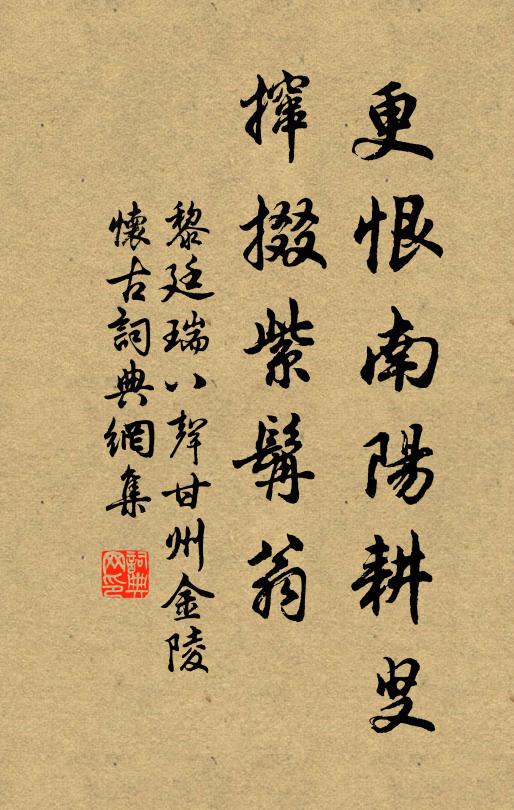 更恨南陽耕叟
撺掇紫髯翁
黎廷瑞八聲甘州金陵
懷古詞典網集
詞典
网印